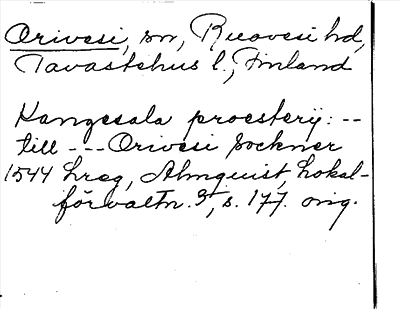 Orivesi, sn, Ruovesi hd,
Tavastehus l., Finland
Kangesala prosterij: --
till --- Orivesi sockner
1544 hreg, Almquist, Lokal-
förvaltn. 3, s. 177. orig.